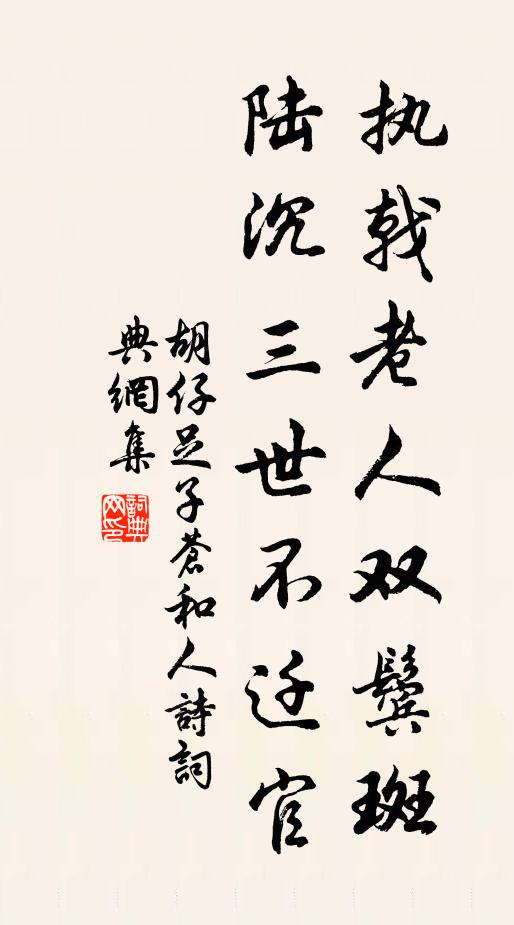 执戟老人双鬓斑
陆沉三世不迁官
胡仔足子蒼和人詩詞
典網集
詞典
网印